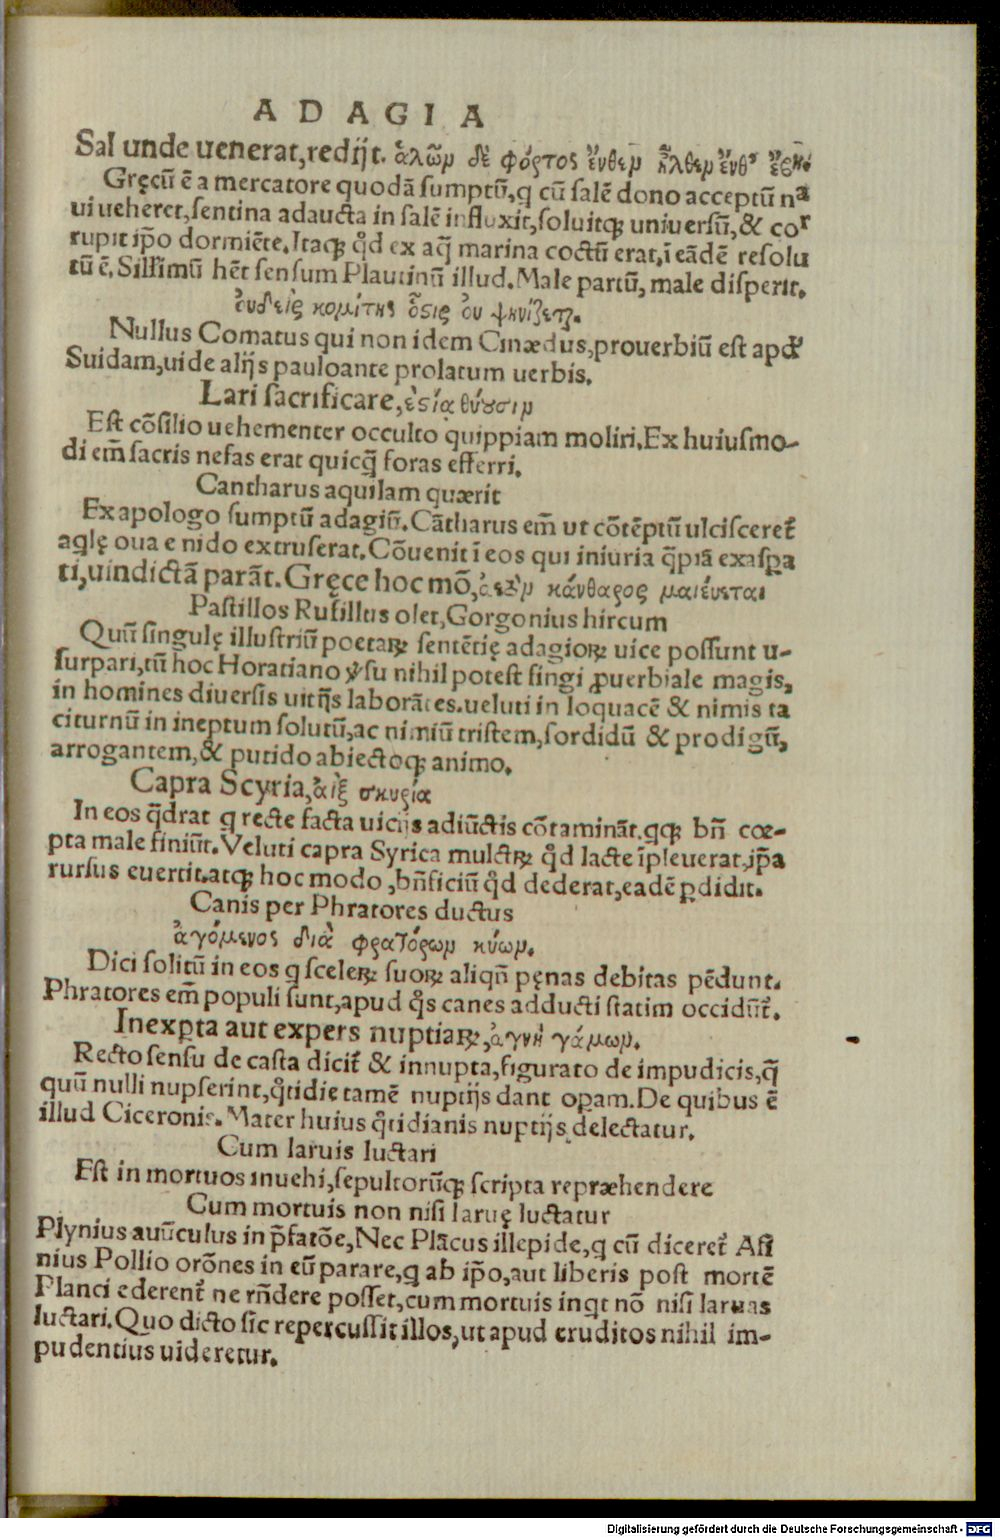 ADAGIA
Sal unde uenerat,redijt. ἁλῶν δὲ φόρτος ἔνθεν ἦλθεν ἔνθ'
Gręcū ē a mercatore quodā sumptū,q cū salē dono acceptū na
ui ueheret,sentina adaucta in salē influxit,soluitqȝ uniuersū,& cor
rupit ip̄o dormiēte.Itaqȝ qd̄ ex aq̄ marina coctū erat,ī eādē resolu
tū ē.Sillimū hēt sensum Plautinū illud.Male partū, male disperit.
ὀυδεὶς κομίτης ὅστις ὀυ ψηνίζεται.
Nullus Comatus qui non idem Cinædus,prouerbiū est apd'
Suidam,uide alijs pauloante prolatum uerbis.
Lari sacrificare,ἑστία θύουσιν
Est cōsilio uehementer occulto quippiam moliri.Ex huiusmo-
di em̄ sacris nefas erat quicq̄ foras efferri.
Cantharus aquilam quærit
Ex apologo sumptū adagiū.Cātharus em̄ ut cōtēptū ulcisceret̄
aqlę oua e nido extruserat.Cōuenit ī eos qui iniuria q̄piā exasꝑa
ti,uindictā parāt.Gręce hoc mō, κάνθαρος μαιέυεται
Pastillos Rufillus olet,Gorgonius hircum
Quū singulę illustriū poetaꝝ sentētię adagioꝝ uice possunt u-
surpari,tū hoc Horatiano ỽsu nihil potest fingi ꝓuerbiale magis,
in homines diuersis uitijs laborātes.ueluti in loquacē & nimis ta
citurnū in ineptum solutū,ac nimiū tristem,sordidū & prodigū,
arrogantem,& putido abiectoqȝ animo.
Capra Scyria,ἀὶξ σκυρία
In eos q̄drat q recte facta uicijs adiūctis cōtaminār.qqȝ bn̄ cœ-
pta male finiūt.Veluti capra Syrica mulctꝝ qd̄ lacte īpleuerat,ip̄a
rursus euertit.atqȝ hoc modo ,bn̄ficiū qd̄ dederat,eadē ꝑdidit.
Canis per Phratores ductus
ἀγόμενος διὰ φρατόρων κύων.
Dici solitū in eos q sceleꝝ suoꝝ aliqn̄ pęnas debitas pēdunt.
Phratores em̄ populi sunt,apud q̄s canes adducti statim occidūt̄.
Inexꝑta aut expers nuptiaꝝ,ἁγνὴ γάμων.
Recto sensu de casta dicit̄ & innupta,figurato de impudicis,q̄
quū nulli nupserint,q̄tidie tamē nuptijs dant oꝑam.De quibus ē
illud Ciceronis.Mater huius q̄tidianis nuptijs delectatur.
Cum laruis luctari
Est in mortuos inuehi,sepultorūqȝ scripta repræhendere
Cum mortuis non nisi laruę luctatur
Plynius auūculus in p̄fatōe,Nec Plācus illepide,q cū diceret̄ Asi
nius Pollio orōnes in eū parare,q ab ip̄o,aut liberis post mortē
Planci ederent̄ ne rn̄dere posset,cum mortuis inqt nō nisi laruas
luctari.Quo dicto sic repercussit illos,ut apud eruditos nihil im-
pudentius uideretur.
Digitalisierung gefördert durch die Deutsche Forschungsgemeinschaft - DFG